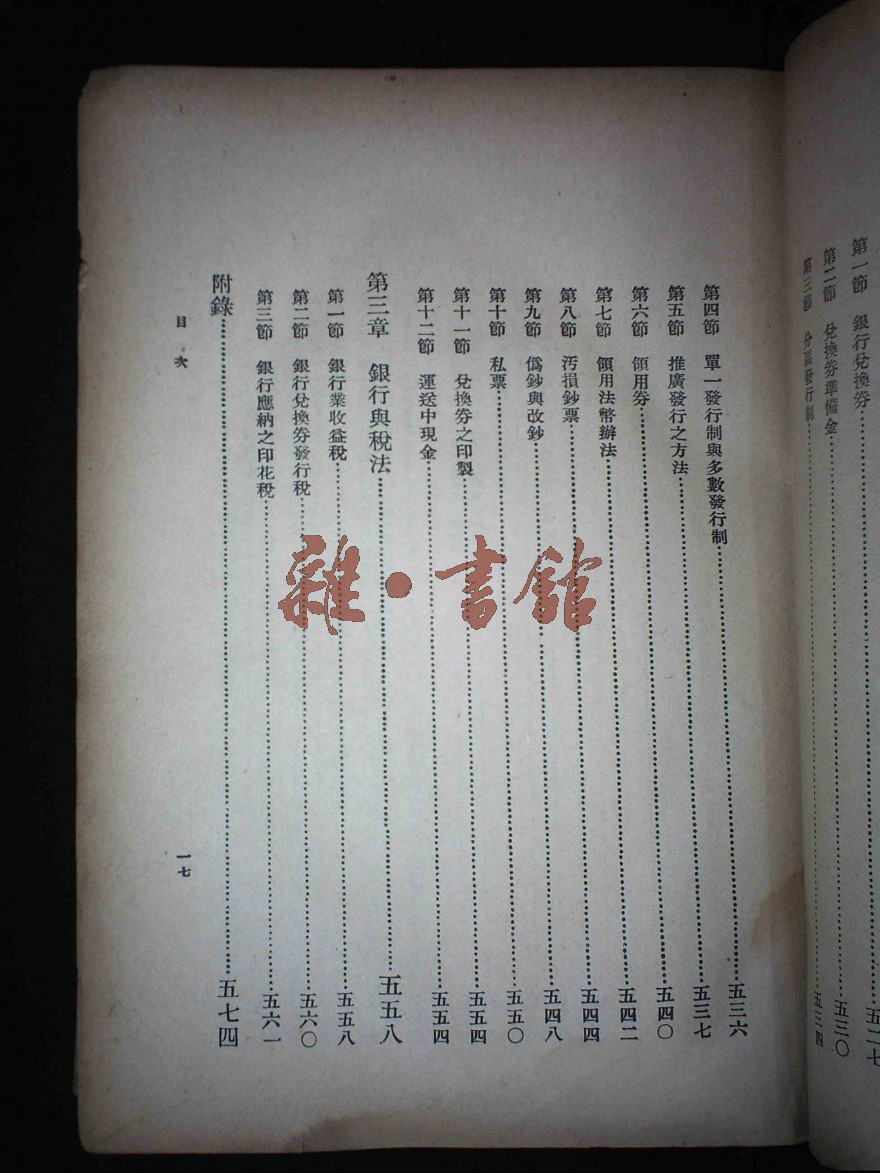 第一節　銀行兌換券⋯⋯五二七
第二節　兌換券準備金⋯⋯五三〇
第三節　分區發行制⋯⋯五三四
第四節　單一發行制與多數發行制⋯⋯五三六
第五節　推廣發行之方法⋯⋯五三七
第六節　領用券⋯⋯五四〇
第七節　領用法幣辦法⋯⋯五四二
第八節　污損鈔票⋯⋯五四四
第九節　僞鈔與改鈔⋯⋯五四八
第十節　私票⋯⋯五五〇
第十一節　兌換券之印製⋯⋯五五四
第十二節　運送中現金⋯⋯五五四
第三章　銀行與稅法⋯⋯五五八
第一節　銀行業收益稅⋯⋯五五八
第二節　銀行兌換券發行稅⋯⋯五六〇
第三節　銀行應納之印花稅⋯⋯五六一
附錄⋯⋯五七四
目次
一七
雜·書館